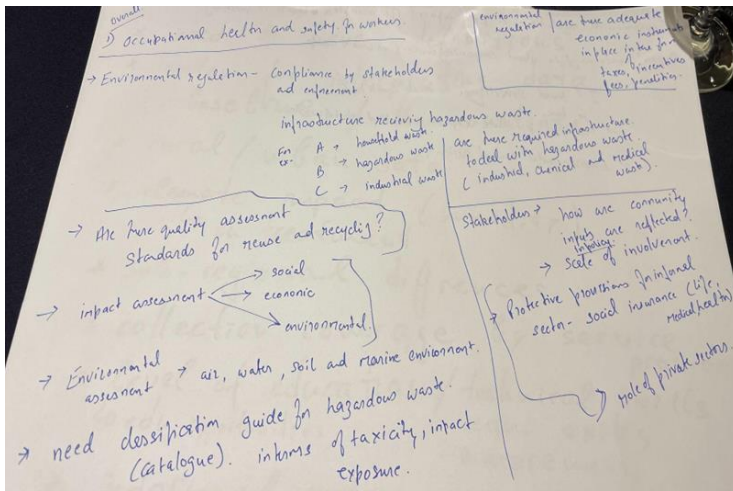 Overall
1) Occupational health and safety for workers.
→ Environmental regulation - compliance by stakeholders
ad enforcement
infrastructure recieving hazardous waste.
For
ex-
A → household waste
B → hazardous waste
C → industrial waste
→ Are there quality assessment
standards for reuse ad recyclig?
→ impact assessment → social
→ economic
→ environmental.
→ Environmental
assessment → air, water, soil and marine environment.
→ need classification guide for hazardous waste.
(catalogue). interms of taxicity, impact
exposure.
environmental
regulation
are there adequate
economic instruments
in place in tax for
taxes, incentives
fees, penalities.
are there required infrastructure
to deal with hazardous waste
(industrial, chemical and medical
waste).
Stakeholders → how are community
inputs are reflected?
in policy
→ Scale of involvement.
→ Protective provisions for informal
sector - social insurance (life,
medical health)
→ role of private sectors.